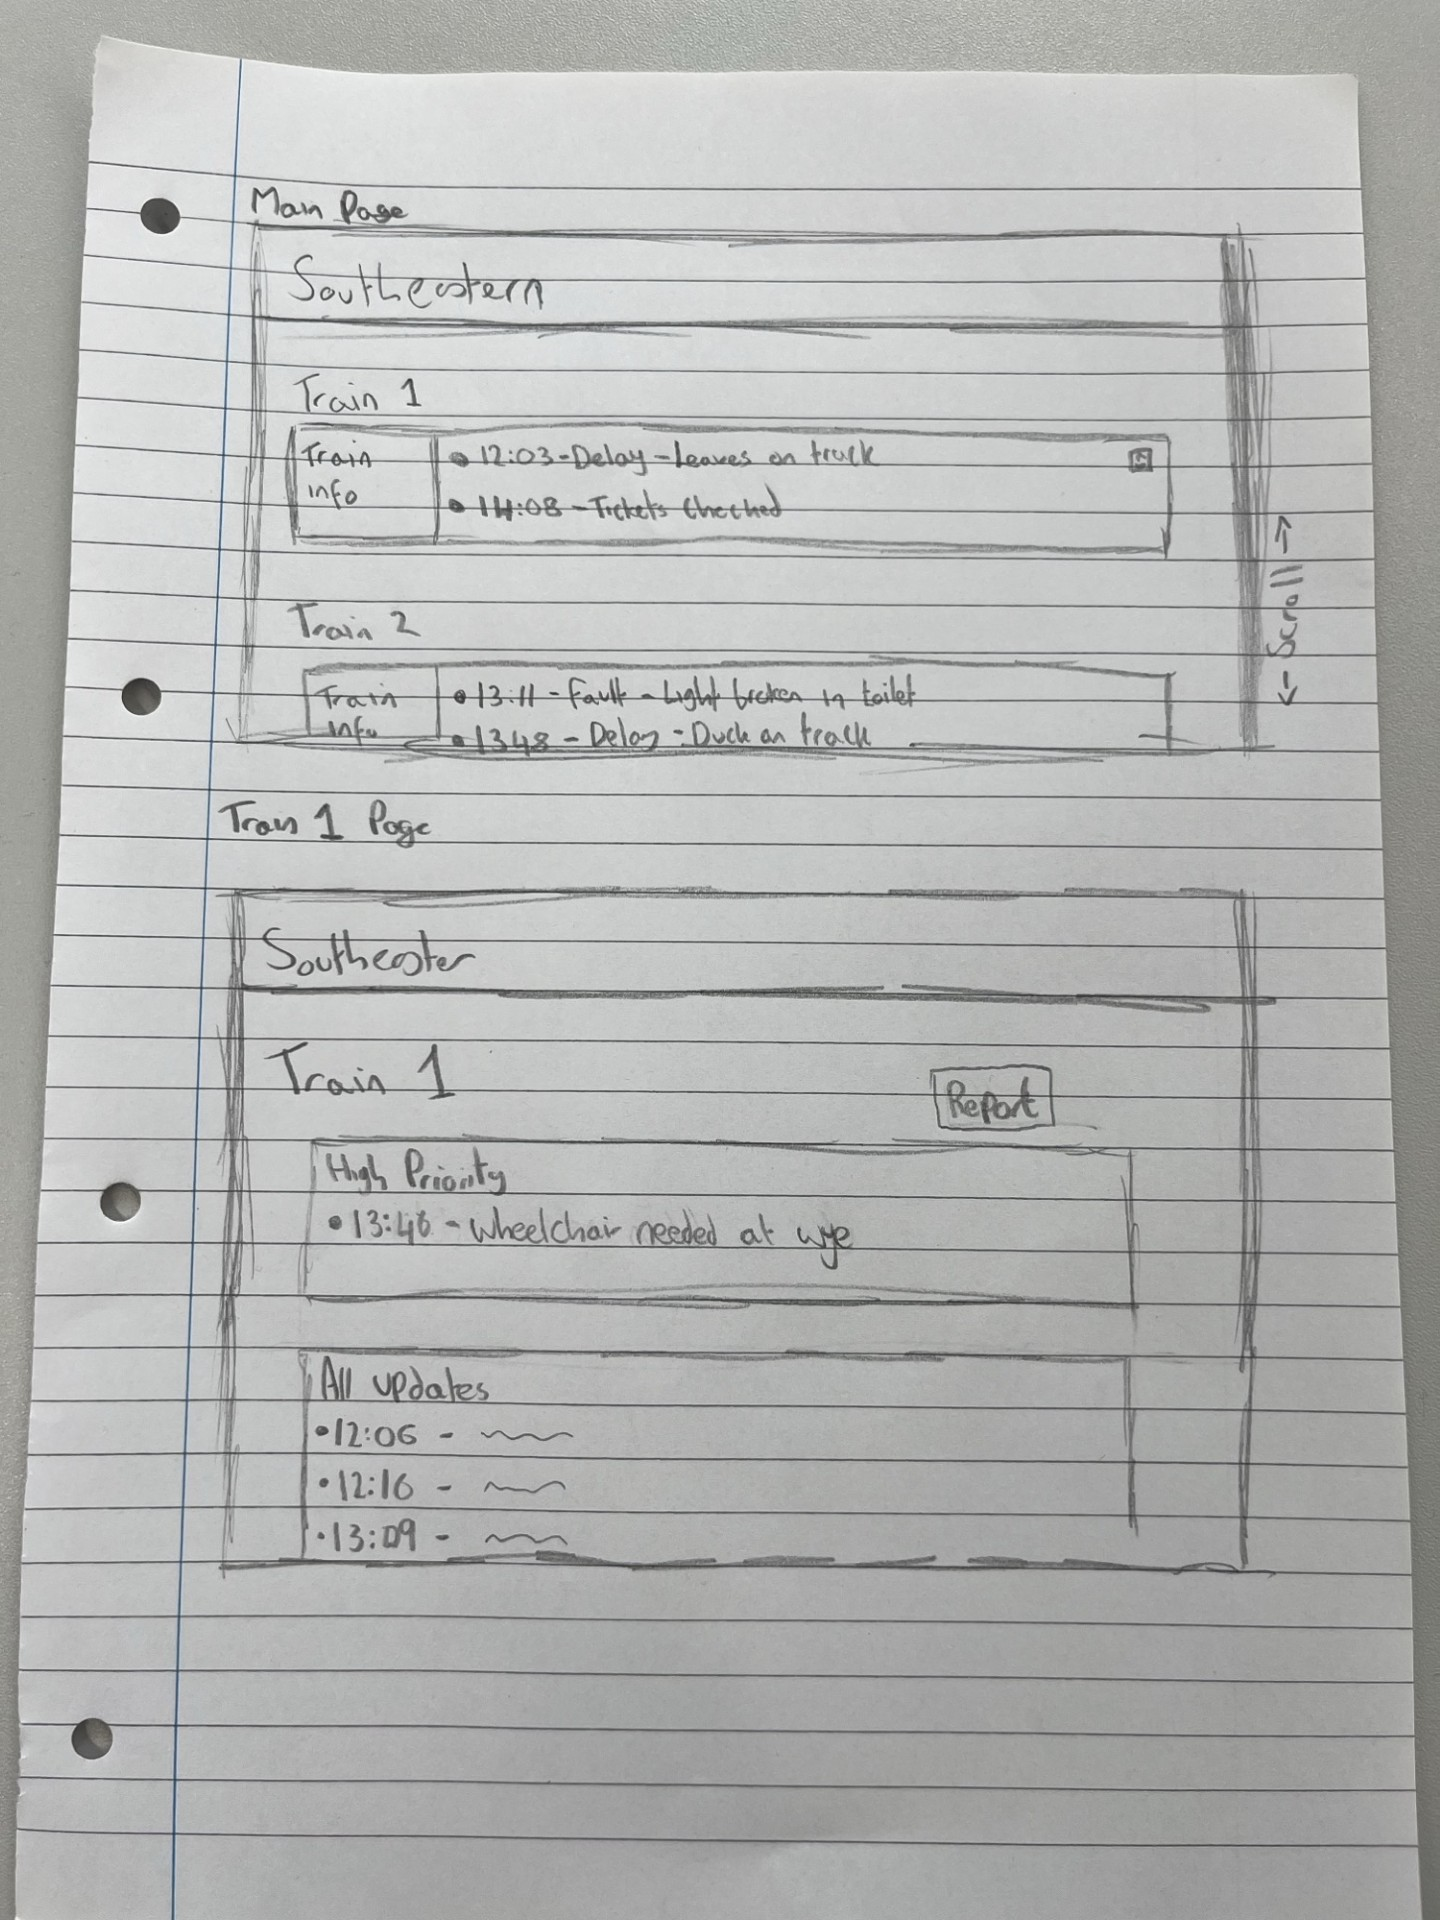 Main Page
Southeastern
Train 1
Train info
• 12:03 - Delay - Leaves on track
• 14:08 - Tickets Checked
Train 2
Train info
• 13:11 - Fault - Light broken in toilet
• 1348 - Delay - Duck on track
← Scroll →
Train 1 Page
Southeaster
Train 1
Report
High Priority
• 13:46 - wheelchair needed at wye
All updates
• 12:06 -
• 12:16 -
• 13:09 -